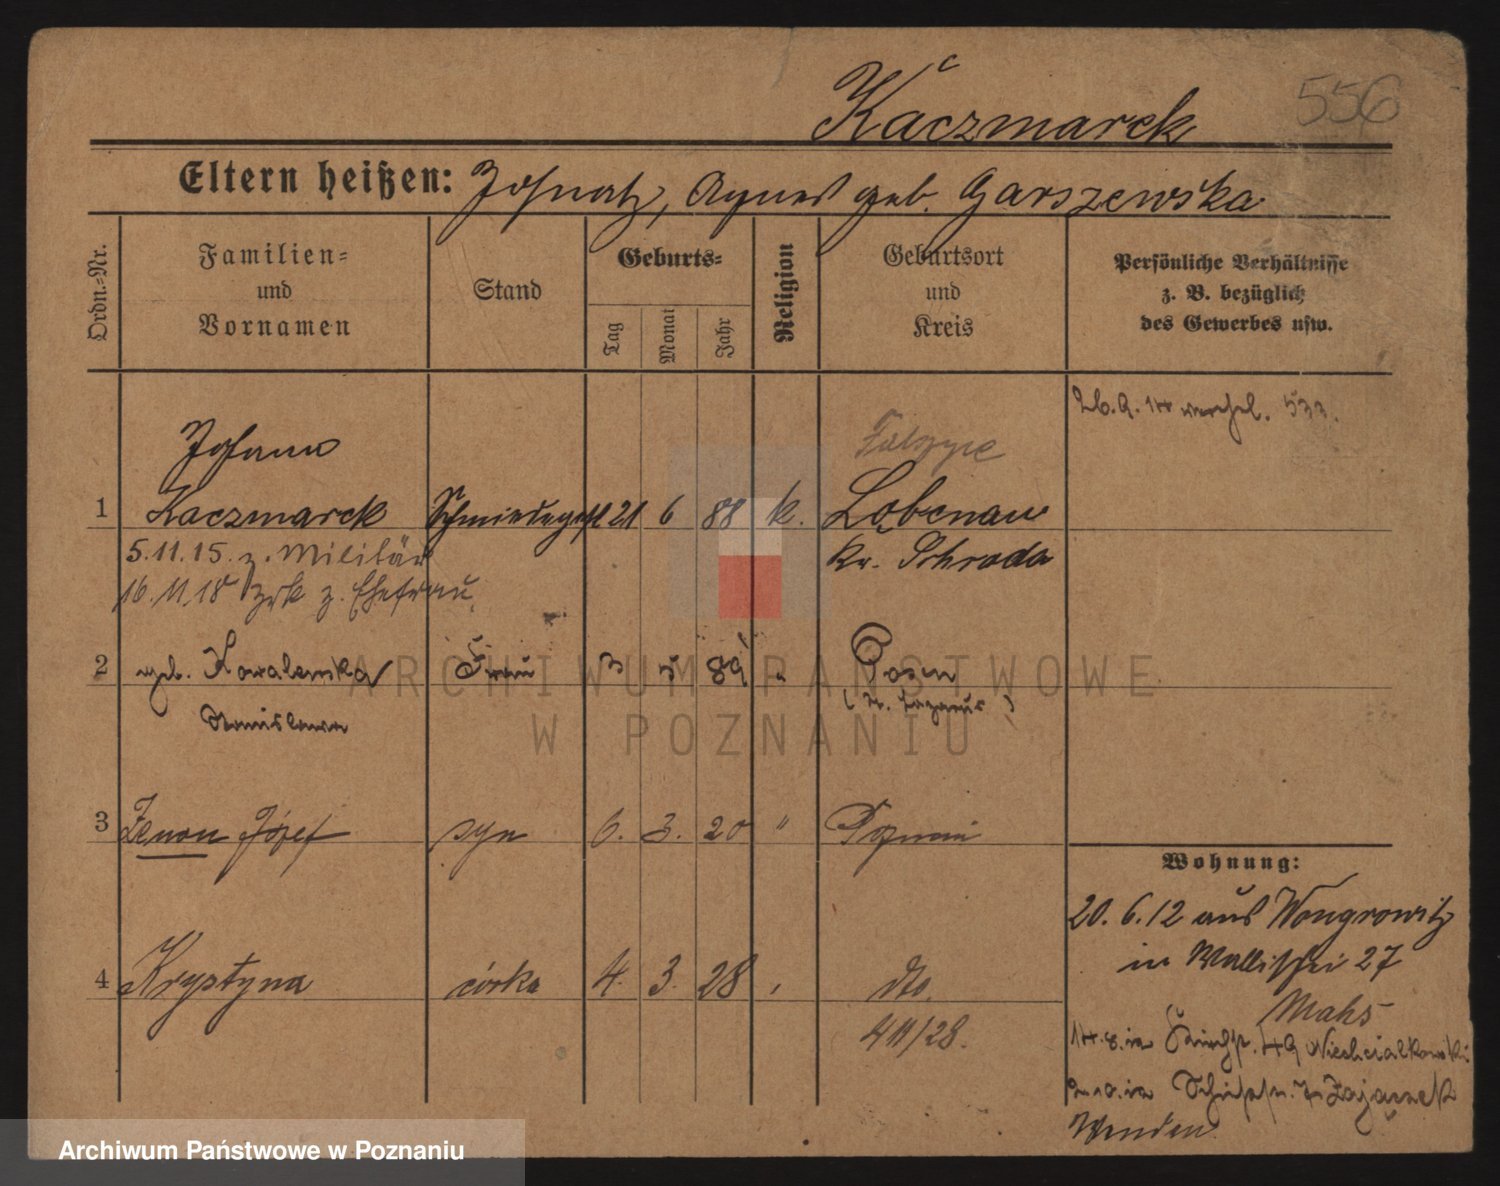 Kaczmarek 556
Eltern heißen: Ignatz, Agnes geb. Garszewska
Ordn.-Nr.
Familien- und Vornamen
Stand
Geburts-
Tag
Monat
Jahr
Religion
Geburtsort und Kreis
Persönliche Verhältnisse
z. B. bezüglich
des Gewerbes usw.
Johann
1 Kaczmarek Schmiedeges 21 6 88 k. Lobenau
Kr. Schroda
5.11.15. z. Militär
16.11.18 zrk z. Ehefrau
2 geb. Kowalewska Frau 3 5 89 " Posen
Stanislawa (St. Lazarus)
3 Zenon Józef syn 6. 3. 20 " Poznań
4 Krystyna córka 4. 3. 28 " dto.
4/4/28.
Wohnung:
20. 6. 12 aus Wongrowitz
in Wallischei 27
Maks
Niechcialkowski
Zajączek
Wenden
ARCHIWUM PAŃSTWOWE
W POZNANIU
Archiwum Państwowe w Poznaniu